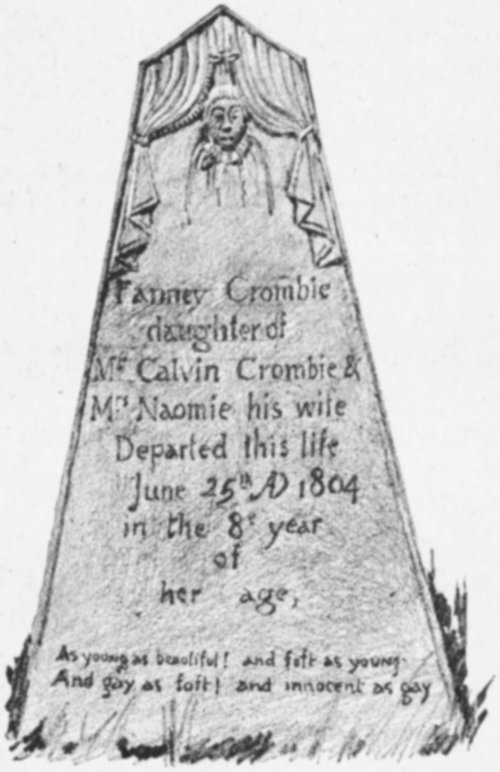 Fanney Crombie
daughter of
Mr Calvin Crombie &
Mrs Naomie his wife
Departed this life
June 25th AD 1804
in the 8e year
of
her age,
As young as beautiful! and soft as young.
And gay as soft! and innocent as gay